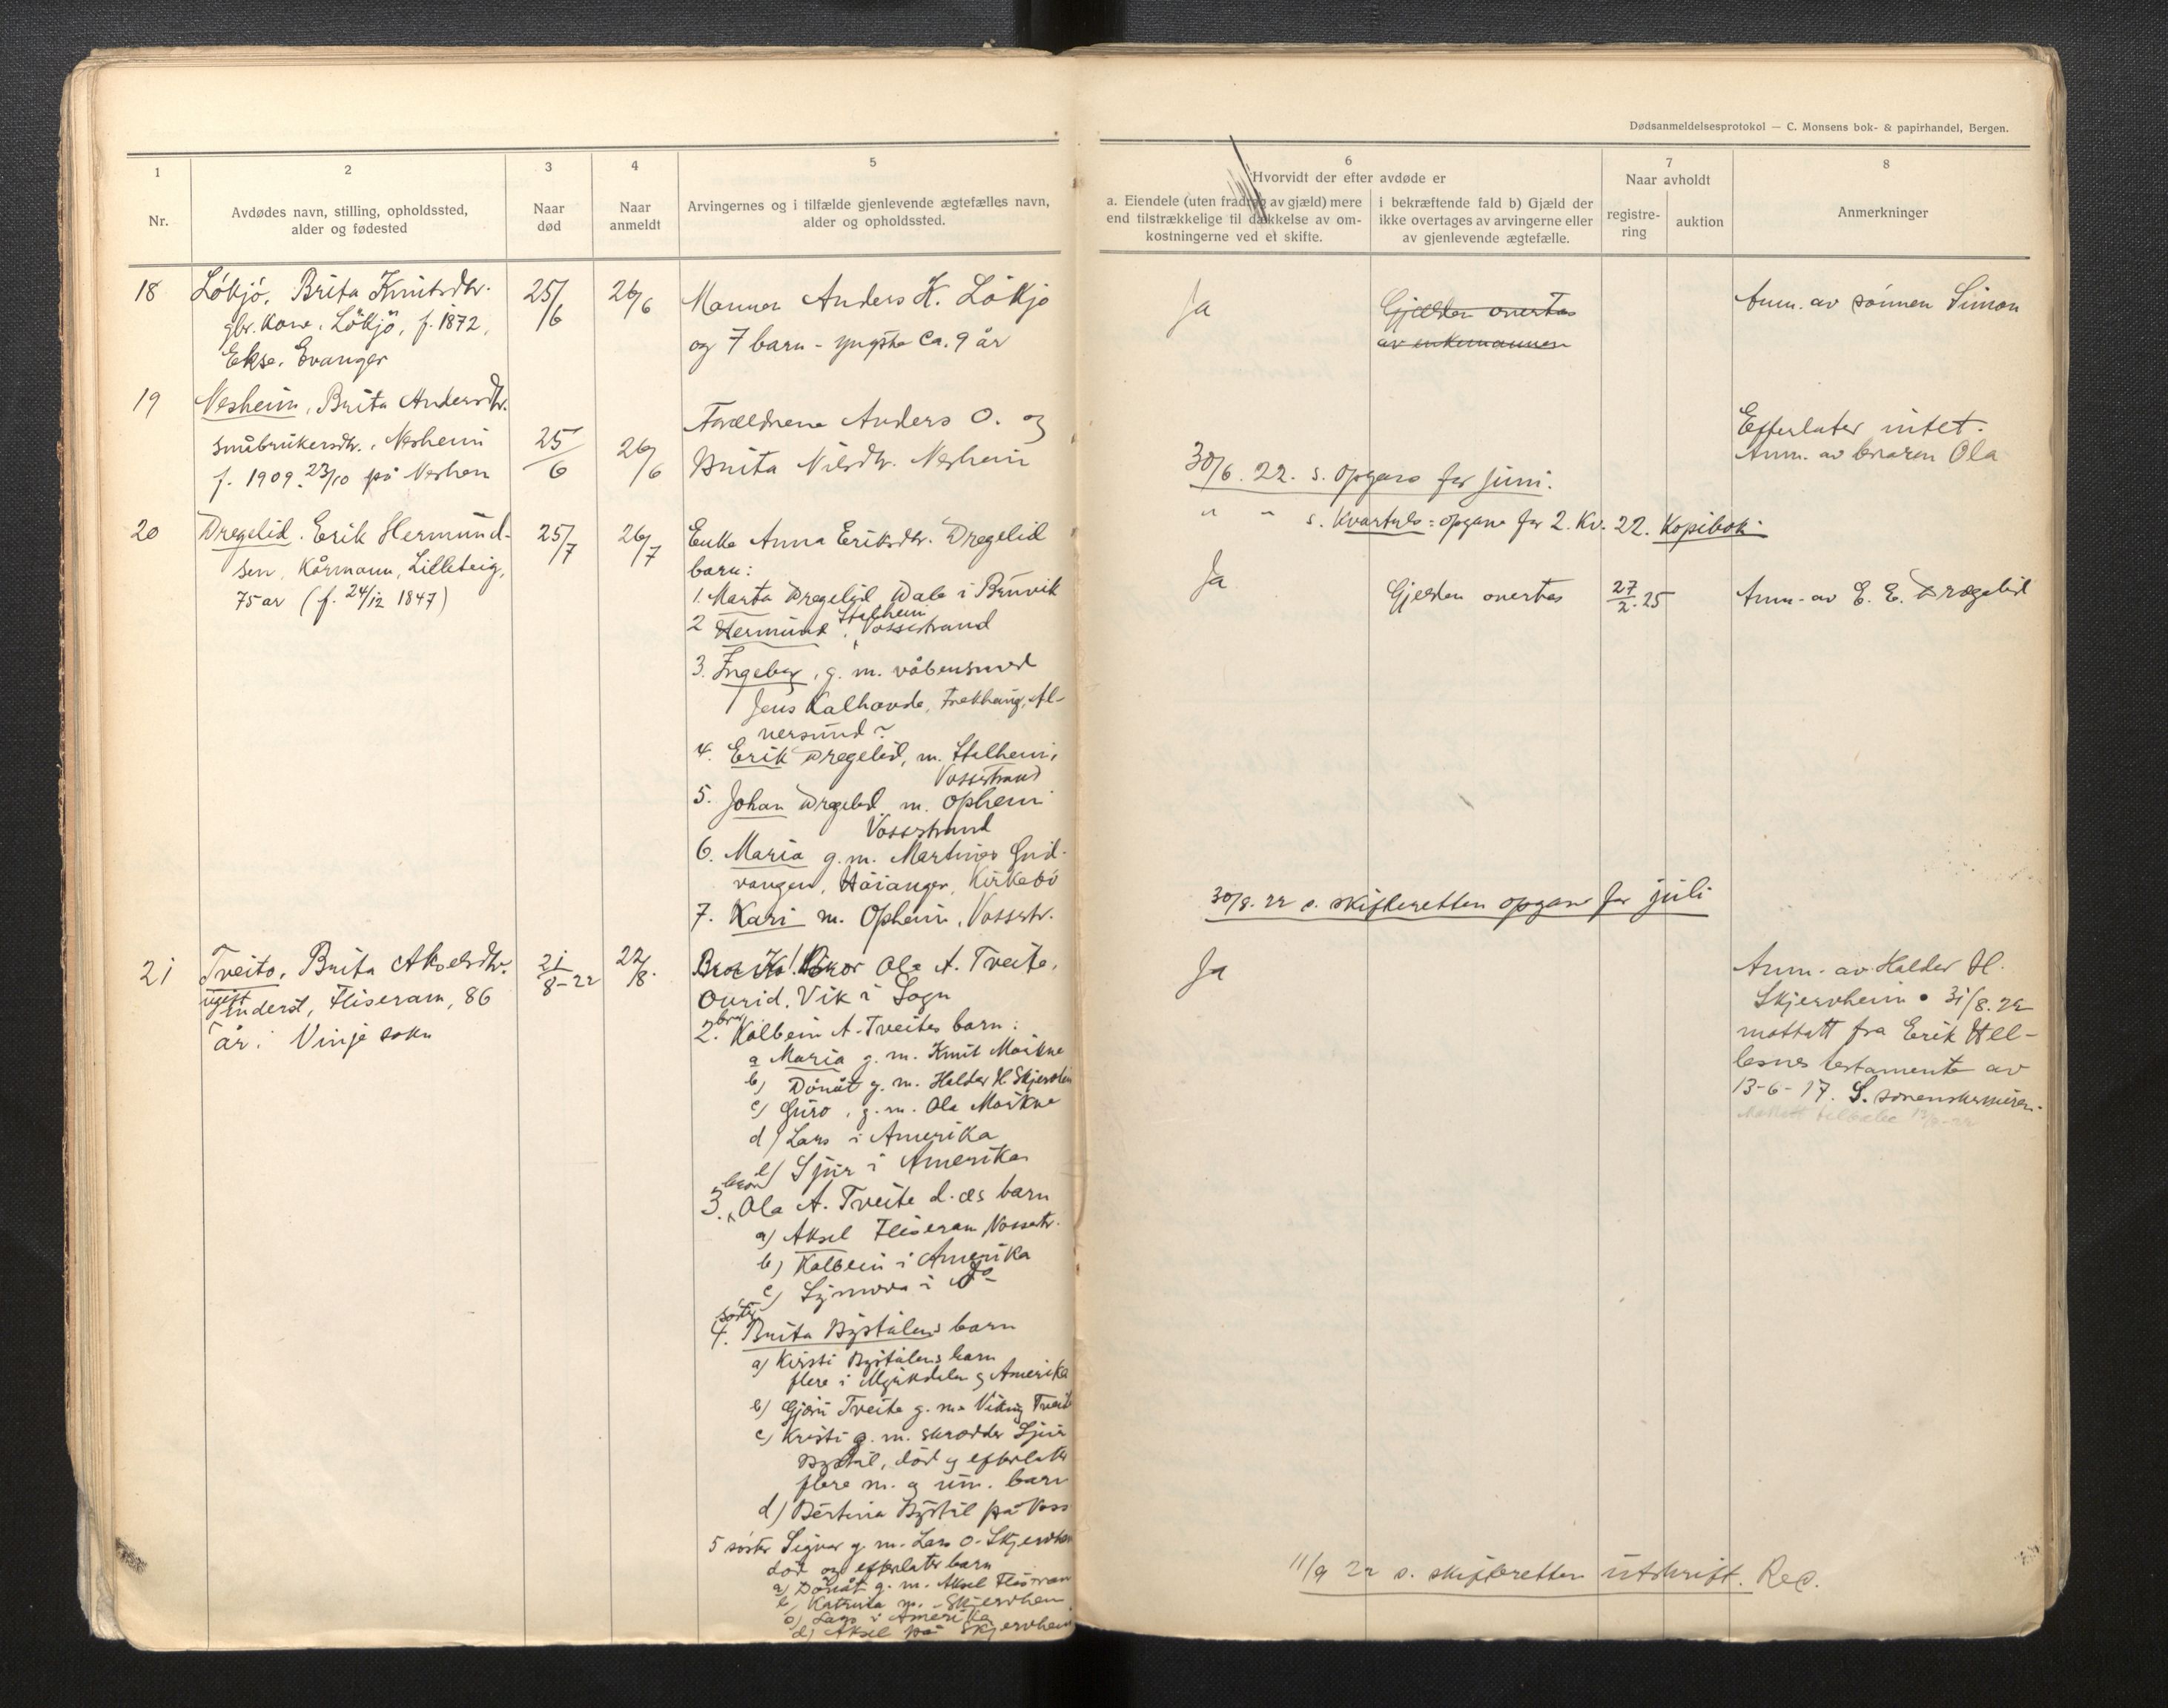 Dødsanmeldelsesprotokol — C. Monsens bok- & papirhandel, Bergen.
1
Nr.
2
Avdødes navn, stilling, opholdssted,
alder og fødested
3
Naar
død
4
Naar
anmeldt
5
Arvingernes og i tilfælde gjenlevende ægtefælles navn,
alder og opholdssted.
6
Hvorvidt der efter avdøde er
a. Eiendele (uten fradrag av gjæld) mere
end tilstrækkelige til dækkelse av om-
kostningerne ved et skifte.
i bekræftende fald b) Gjæld der
ikke overtages av arvingerne eller
av gjenlevende ægtefælle.
7
Naar avholdt
registre-
ring
auktion
8
Anmerkninger
18
Løkjø, Brita Knutsdtr.
gbr. kone, Løkjø, f. 1872,
Ekse, Evanger
25/6
26/6
Mannen Anders K. Løkjø
og 7 barn - yngste ca. 9 år
Ja
Gjelden overtas
av enkemannen
Anm. av sønnen Simon
19
Nesheim, Brita Andersdtr.
småbrukersdtr., Nesheim
f. 1909 23/10 på Neshem
25/6
26/6
Forældrene Anders O. og
Brita Nilsdtr. Nesheim
Efterlater intet.
Anm. av broren Ola
30/6. 22. s. opgave for juni.
" " s. Kvartals=opgave for 2. Kv. 22. Kopibok
20
Dregelid, Erik Hermund-
sen, Kårmann, Lilleteig,
75 år (f. 24/12 1847)
25/7
26/7
Enke Anna Eriksdtr. Dregelid
barn:
1. Marta Dregelid Dale i Bruvik
2 Hermund, Stalheim Vossestrand
3. Ingeborg, g. m. våbensmed
Jens Kalhovde, Frekhaug, Al-
versund ~
4. Erik Dregelid, m. Stalheim,
Vossestrand
5. Johan Dregelid m. Opheim
Vossestrand
6. Maria g. m. Martines Gud-
vangen, Høianger, Kirkebø
7. Kari m. Opheim, Vossestr.
Ja
Gjelden overtas
27/2. 25
Anm. av E. E. Dregelid
30/8. 22 s. skifteretten opgave for juli
21
Treito, Brita Akselsdtr.
ugift
Finderst, Fliseram, 86
år. Vinje sokn
21/8-22
22/8.
Bror Ola A. Treite,
Ovrid, Vik i Sogn
2. bror Kolbein A. Treites barn:
a Maria g. m. Knut Mørkve
b) Dønåt g. m. Haldor H. Skjervheim
c) Guro, g. m. Ola Mørkve
d) Lars i Amerika
e) Sjur i Amerika
3. bror Ola A. Treite d. æs barn
a) Aksel Fliseram Vossestr.
b) Kolbein i Amerika
c) Synnøva i Do
søster
4. Brita Bystølens barn
a) Kirsti Bystølens barn
flere i Myrkdalen og Amerika
b) Gjøri Treite g. m. Viking Treite
c) Kristi g. m. skrædder Sjur
Bystøl, død og efterlater
flere m. og um. barn
d) Bertina Bystøl på Voss
5 søster Signe g. m. Lars O. Skjervheim
død og efterlater barn
a) Dønåt g. m. Aksel Fliseram
b) Katrina m. Skjervheim
c) Lars i Amerika
d) Aksel på Skjervheim
Ja
Anm. av Haldor H.
Skjervheim. 31/8. 22
mottatt fra Erik Hel-
lesnes testamente av
13-6-17. S. sorenskriveren.
11/9 22 s. skifteretten utskrift. Rec.